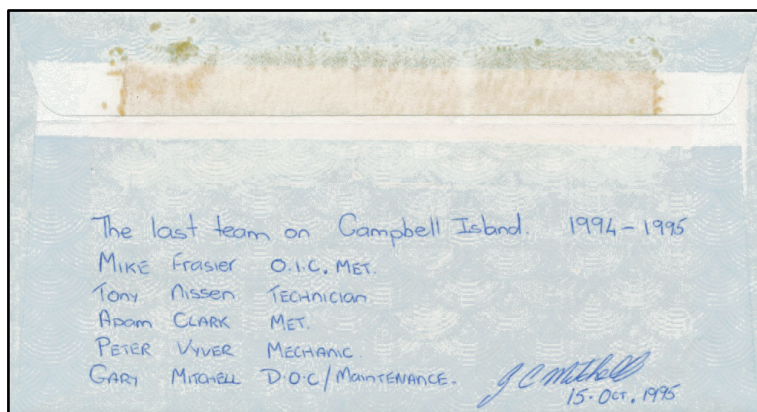 The last team on Campbell Island. 1994-1995
MIKE Frasier O.I.C. MET.
Tony Nissen TECHNICIAN
Adam CLARK MET.
PETER VYVER MECHANIC
GARY MITCHELL D.O.C/MAINTENANCE.
G C Mitchell
15. OCT. 1995